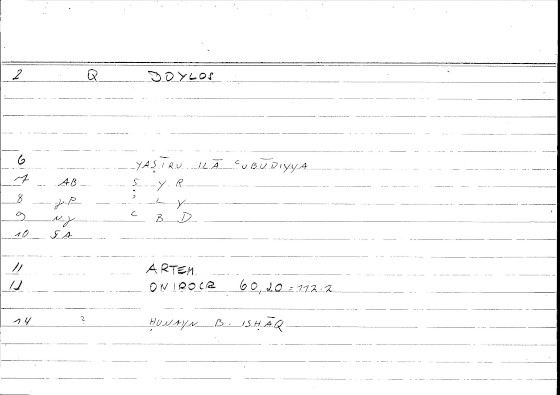 2 Q DOYLOS
6 YAṢĪRU ILĀ ʿUBŪDIYYA
7 AB Ṣ Y R
8 L Y
9 ʿ B D
10
11 ARTEM
12 ONIROCR 60,20 = 112.2
14 2 ḤUNAYN B. ISḤĀQ